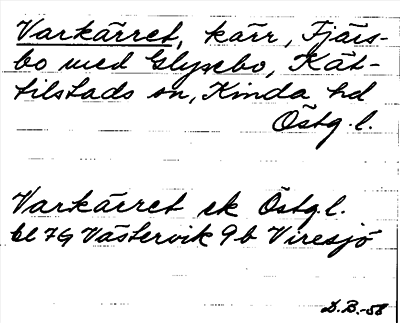 Varkärret, kärr, Fjärs-
bo med Glysebo, Kät-
tilstads sn, Kinda hd
Östg.l.
Varkärret ek Östg.l.
bl 7G Västervik 9b Viresjö
D.B.-58